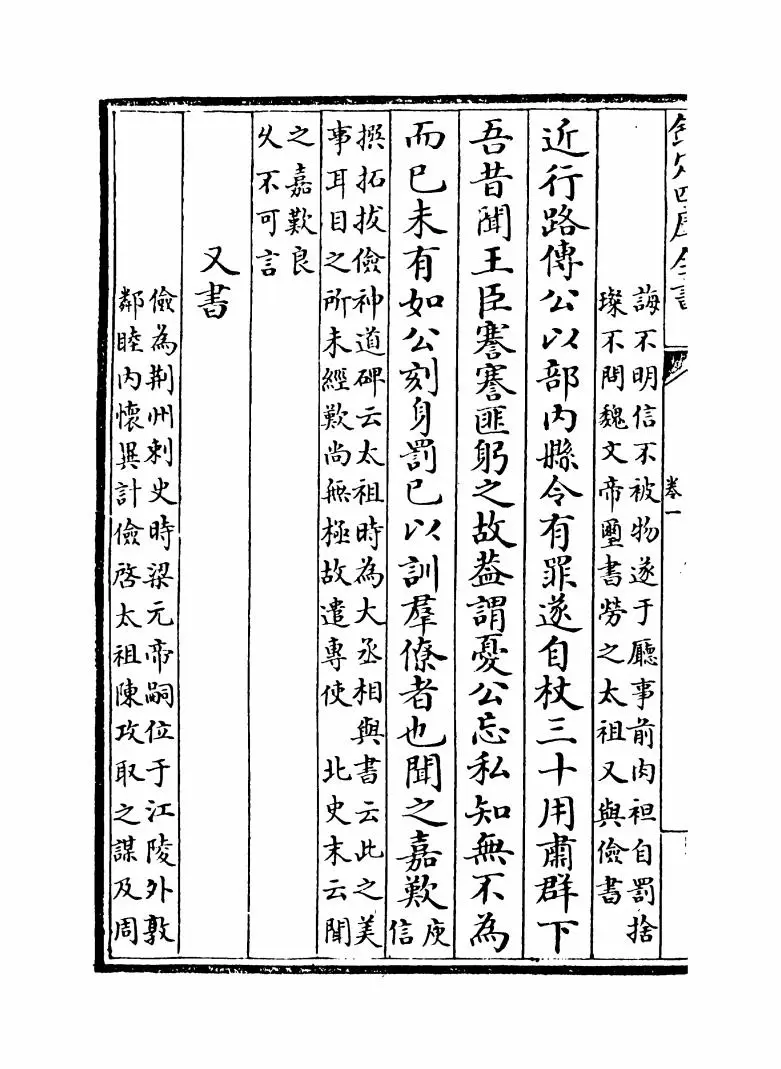 欽定四庫全書
卷一
誨不明信不被物遂于廳事前肉袒自罰捨
璨不問魏文帝璽書勞之太祖又與儉書
近行路傳公以部内縣令有罪遂自杖三十用肅群下
吾昔聞王臣謇謇匪躬之故葢謂憂公忘私知無不為
而已未有如公刻身罰已以訓羣僚者也聞之嘉歎庾
信
撰拓拔儉神道碑云太祖時為大丞相與書云此之美
事耳目之所未經歎尚無極故遣專使 北史末云聞
之嘉歎良
久不可言
又書
儉為荆州刺史時梁元帝嗣位于江陵外敦
鄰睦内懷異計儉啓太祖陳攻取之謀及周